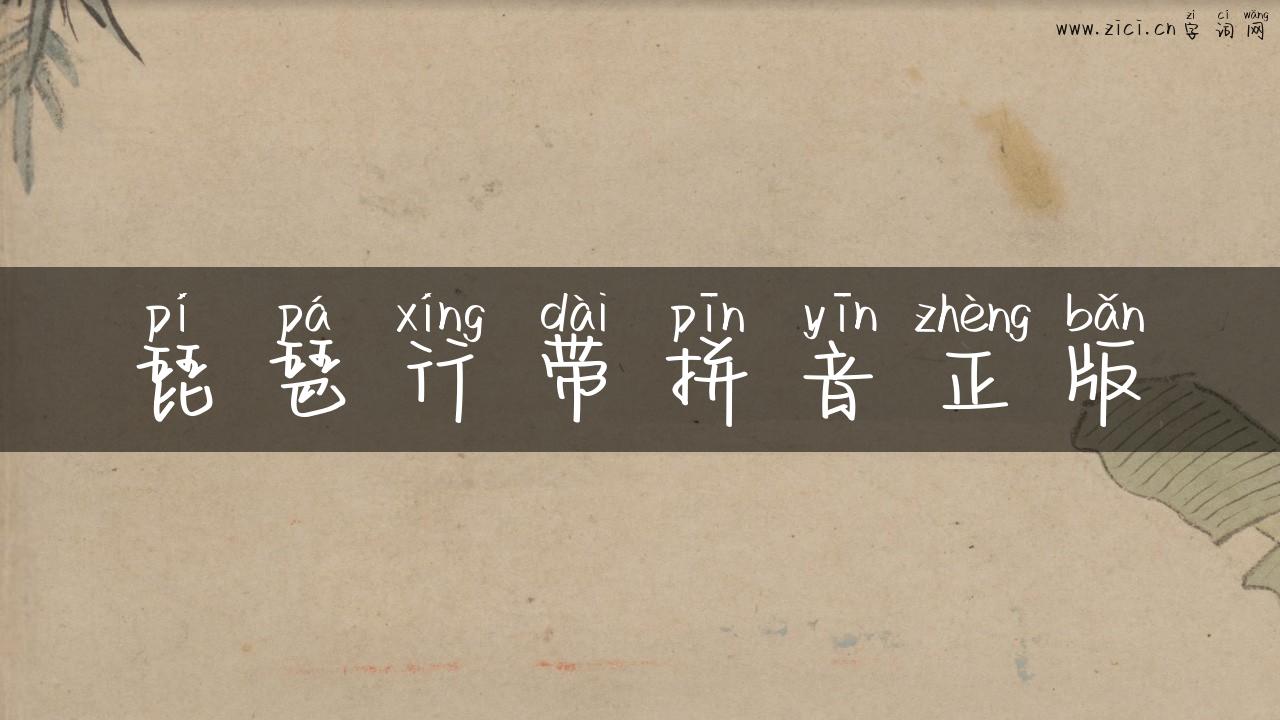 zì cí wǎng
www.zici.cn 字 词 网
pí pá xíng dài pīn yīn zhèng bǎn
琵 琶 行 带 拼 音 正 版